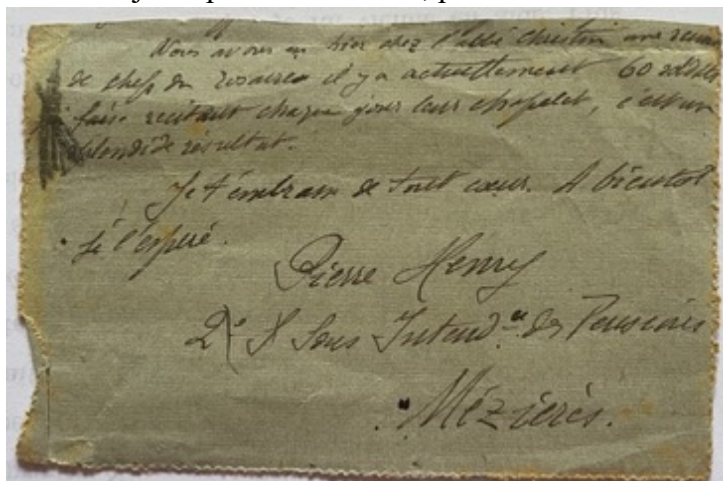 Nous avons eu hier chez l'abbé Christin une
de chefs du rosaire il y a actuellement 60
récitant chaque jour leur chapelet, c'est un
splendide résultat.
Je t'embrasse de tout cœur. A bientôt
je l'espère.
Pierre Henry
2e S Sous Intendce des Pensions
Mézières.